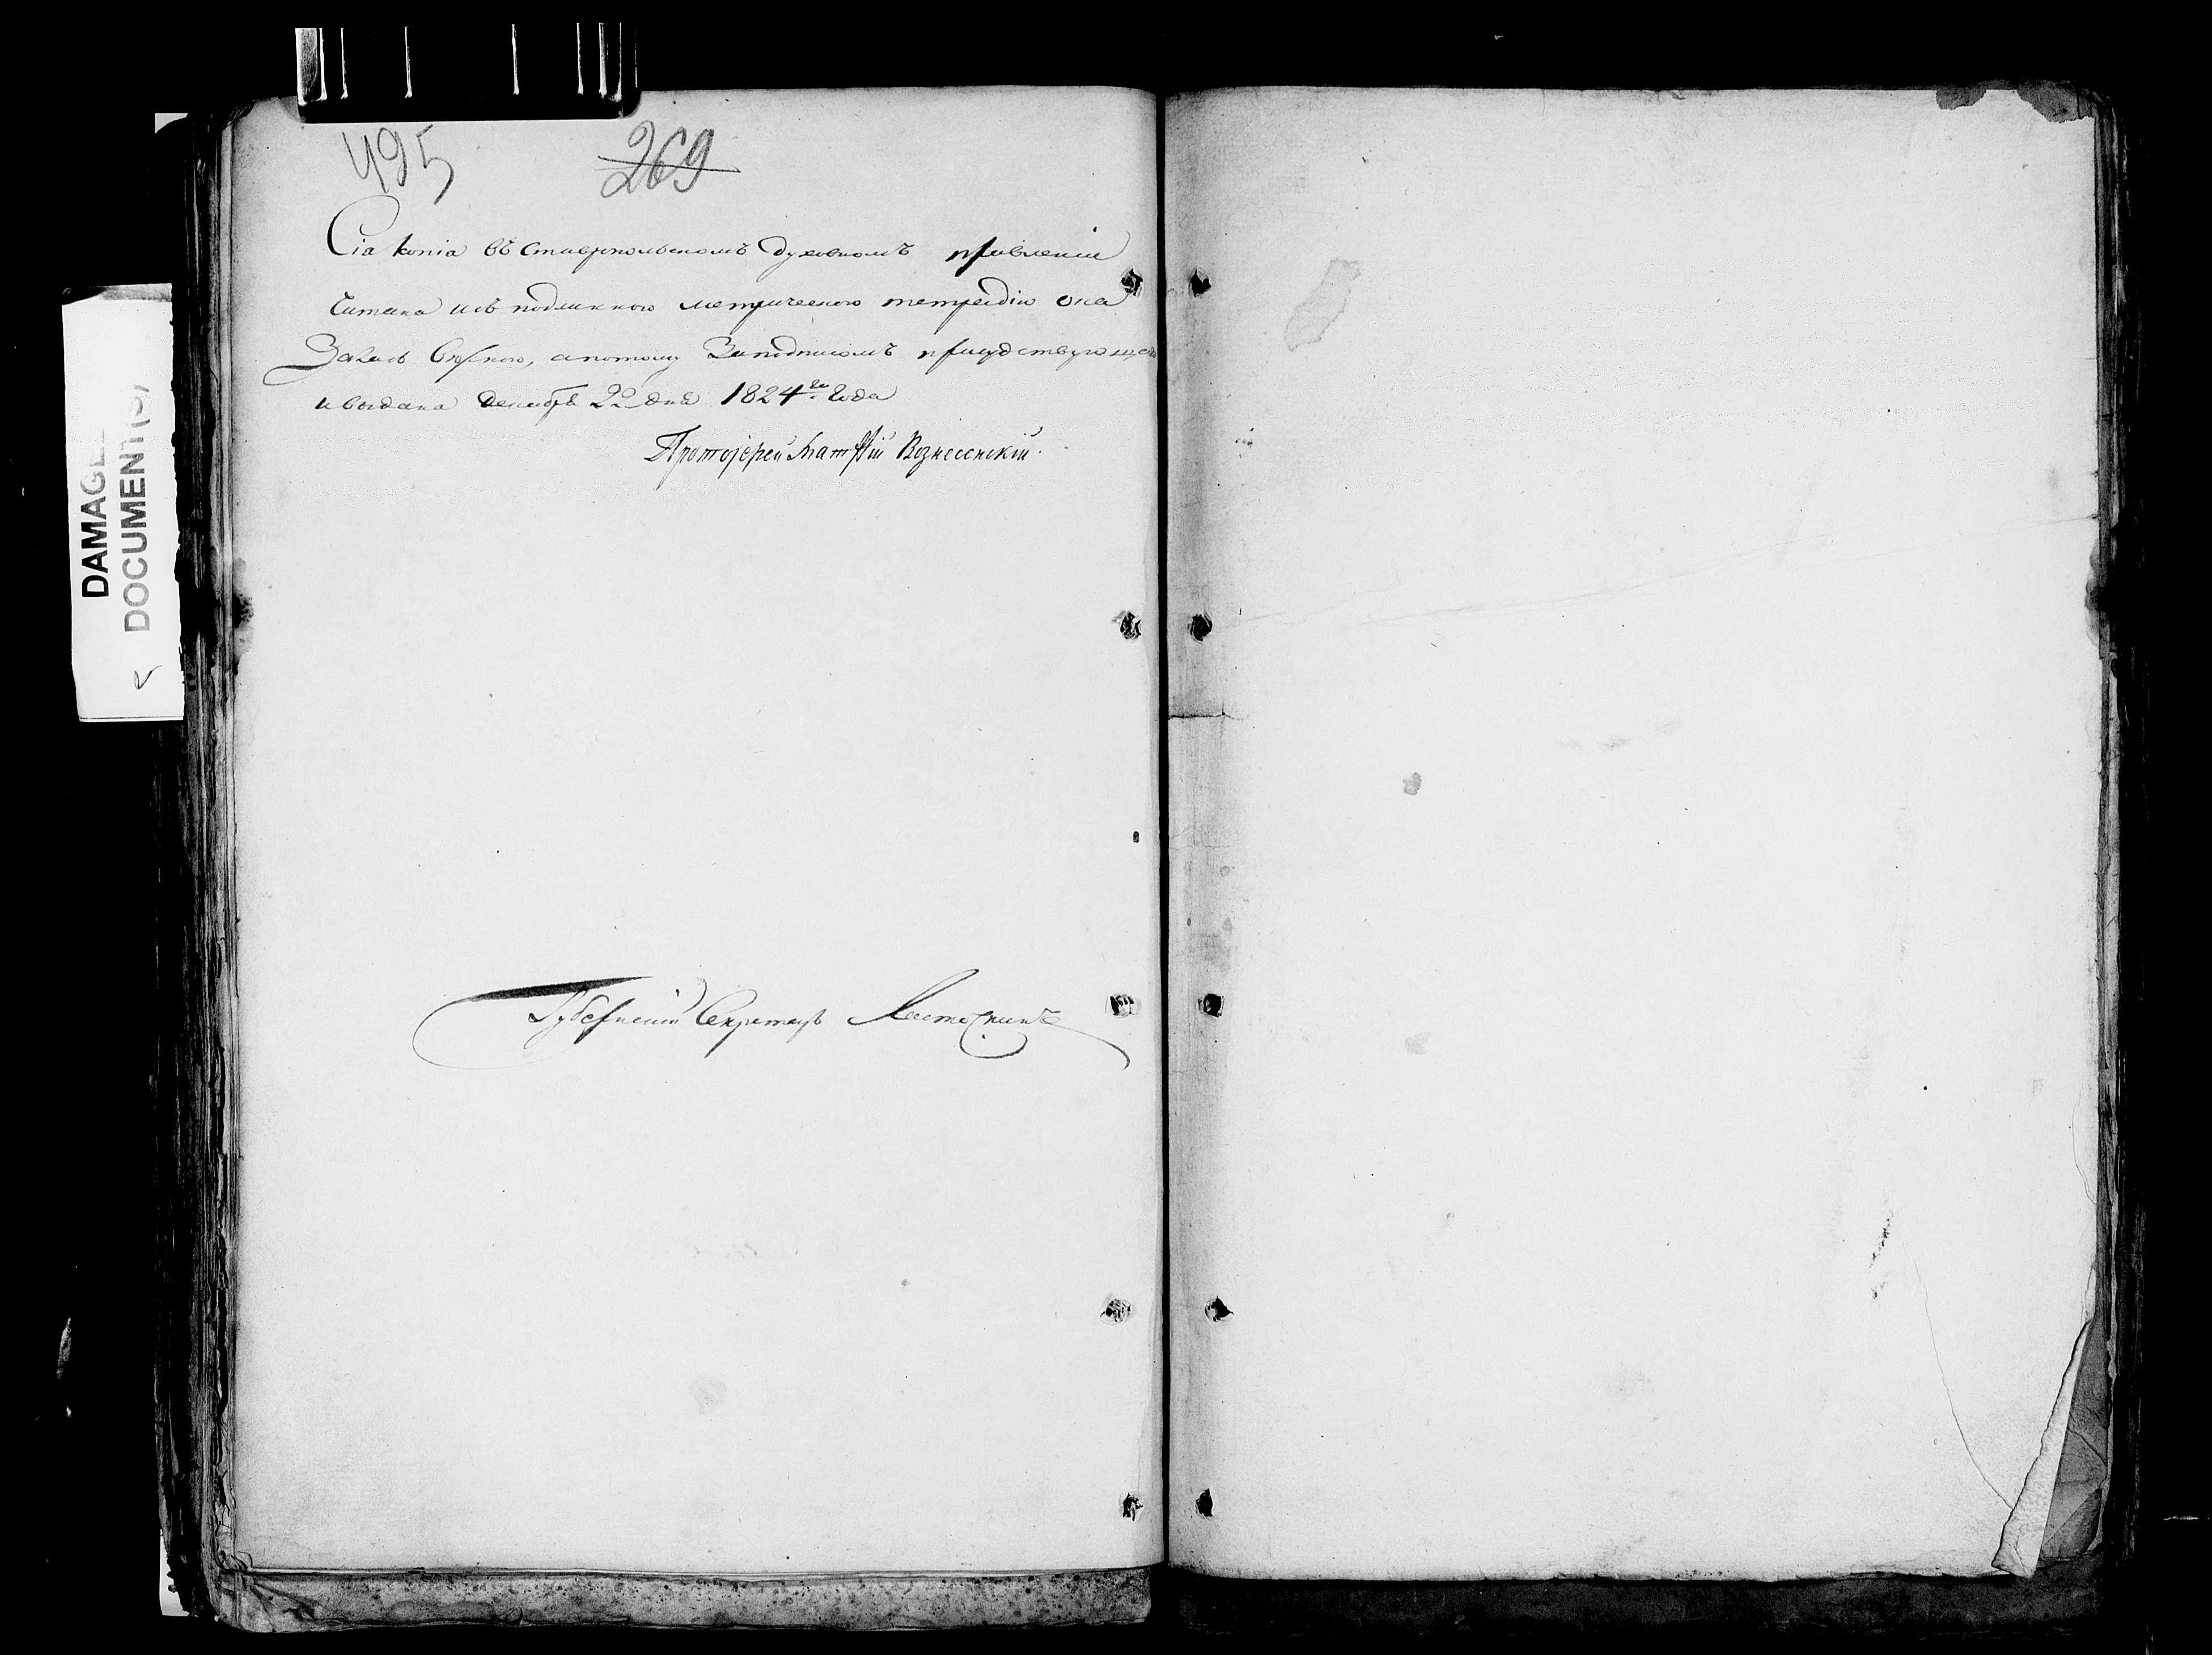 495 269
Сія копія въ Ставропольскомъ духовномъ правленіи
читана и съ подлинною метрическою тетрадію оказалась
верною, а потому за подписомъ присудствующаго
и выдана декабря 22 дня 1824го года
Протоіерей Матфій Вознесенскій.
Губернскій Секретарь
DAMAGED
DOCUMENT(S)